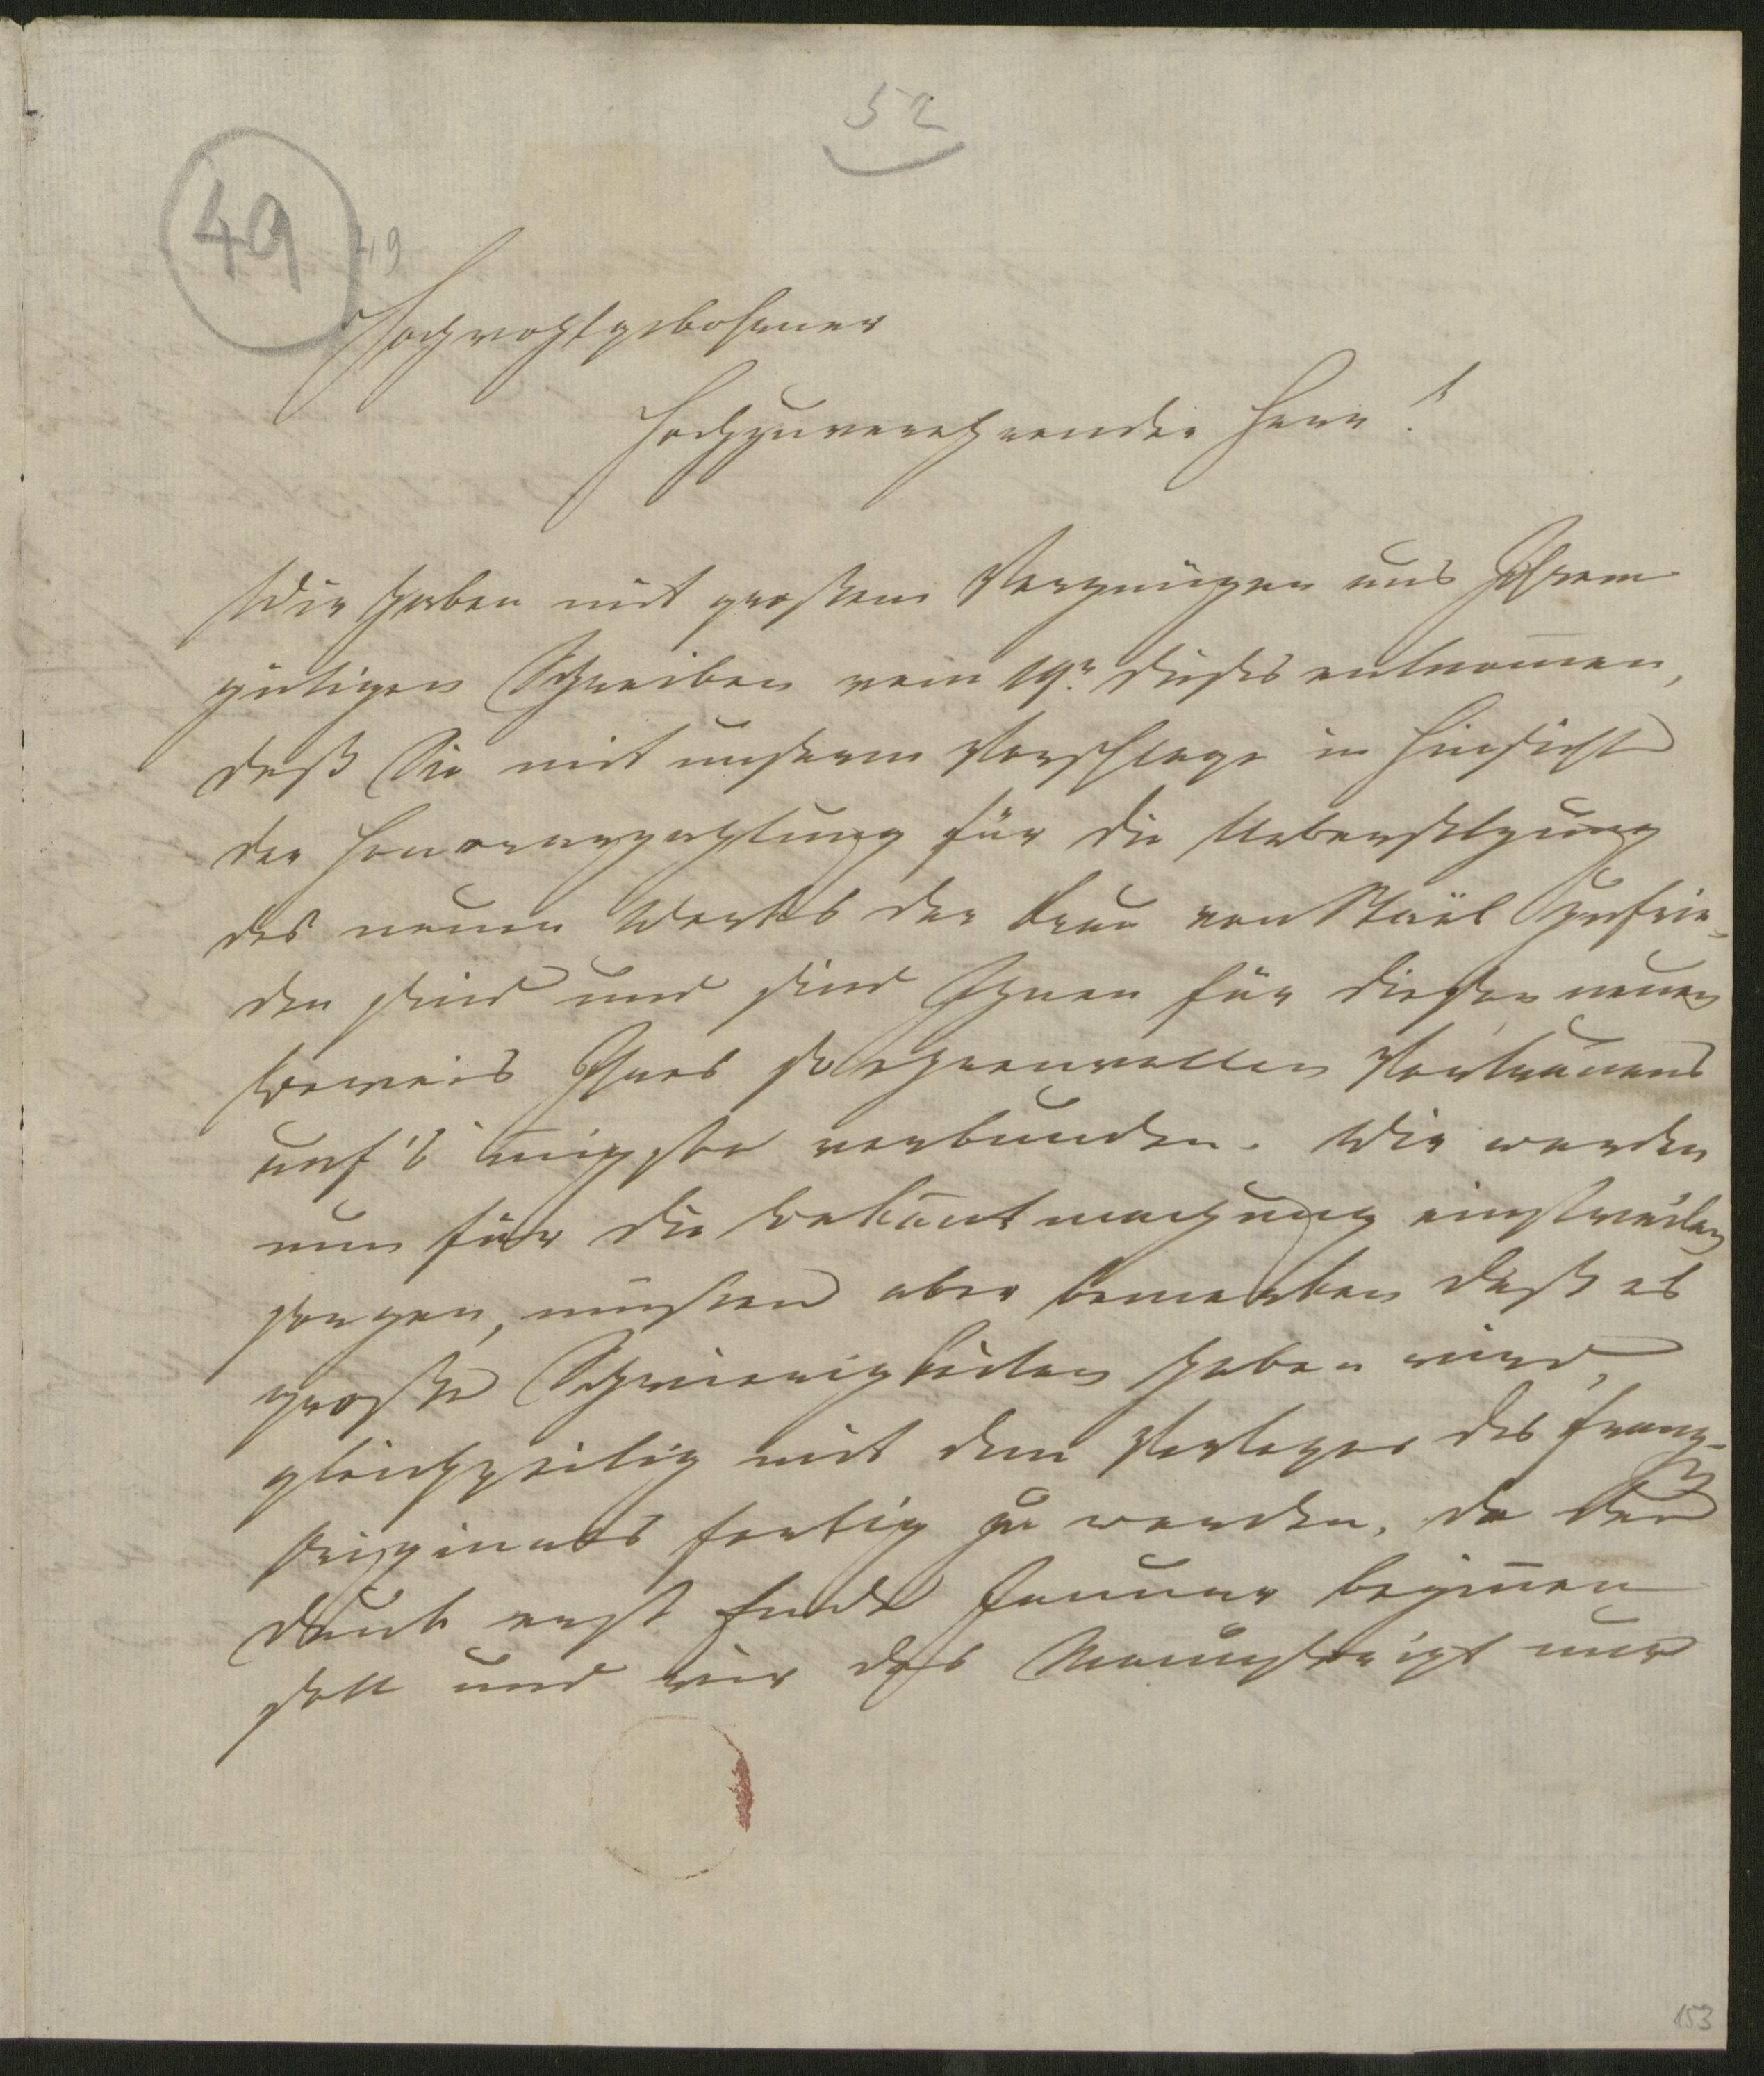 52
49
49
Hochwohlgebohrner
Hochzuverehrender Herr!
Wir haben mit großem Vergnügen aus Ihrem
gütigen Schreiben vom 19n. dieses entnom̄en,
daß Sie mit unserem Vorschlage in Hinsicht
der Honorarzahlung für die Uebersetzung
des neuen Werkes der Frau von Staël zufrie-
den sind und sind Ihnen für diesen neuen
Beweis Ihres so ehrenvollen Vertrauens
auf's innigste verbunden. Wir werden
nun für die Bekan̄tmachung einstweilen
sorgen, müssen aber bemerken daß es
große Schwierigkeiten haben wird,
gleichzeitig mit dem Verleger des franz.
Originals fertig zu werden, da der
Druck erst Ende Januar begin̄en
soll und wir das Manuskript nur
153